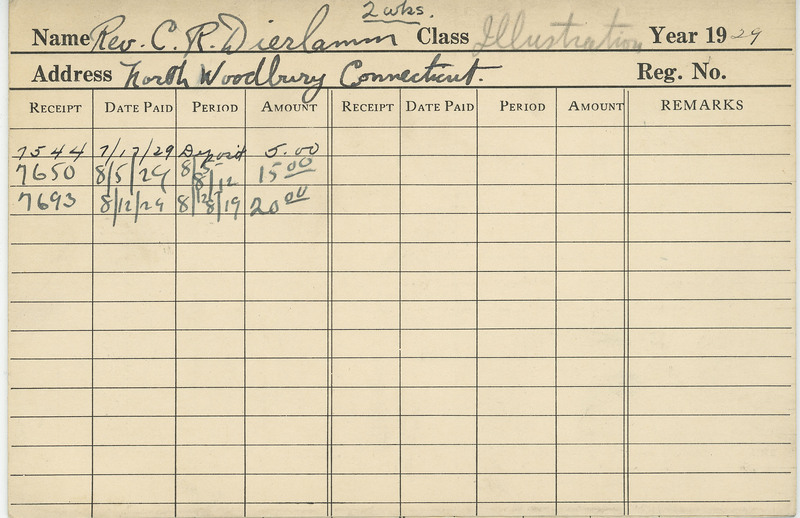 2 wks.
Name Rev. C. R. Dierlamm Class Illustration Year 1929
Address North Woodbury Connecticut. Reg. No.
RECEIPT DATE PAID PERIOD AMOUNT RECEIPT DATE PAID PERIOD AMOUNT REMARKS
7544 7/17/29 Deposit 5.00
7650 8/5/29 8/5 8/12 15 00
7693 8/12/29 8/12 8/19 20 00